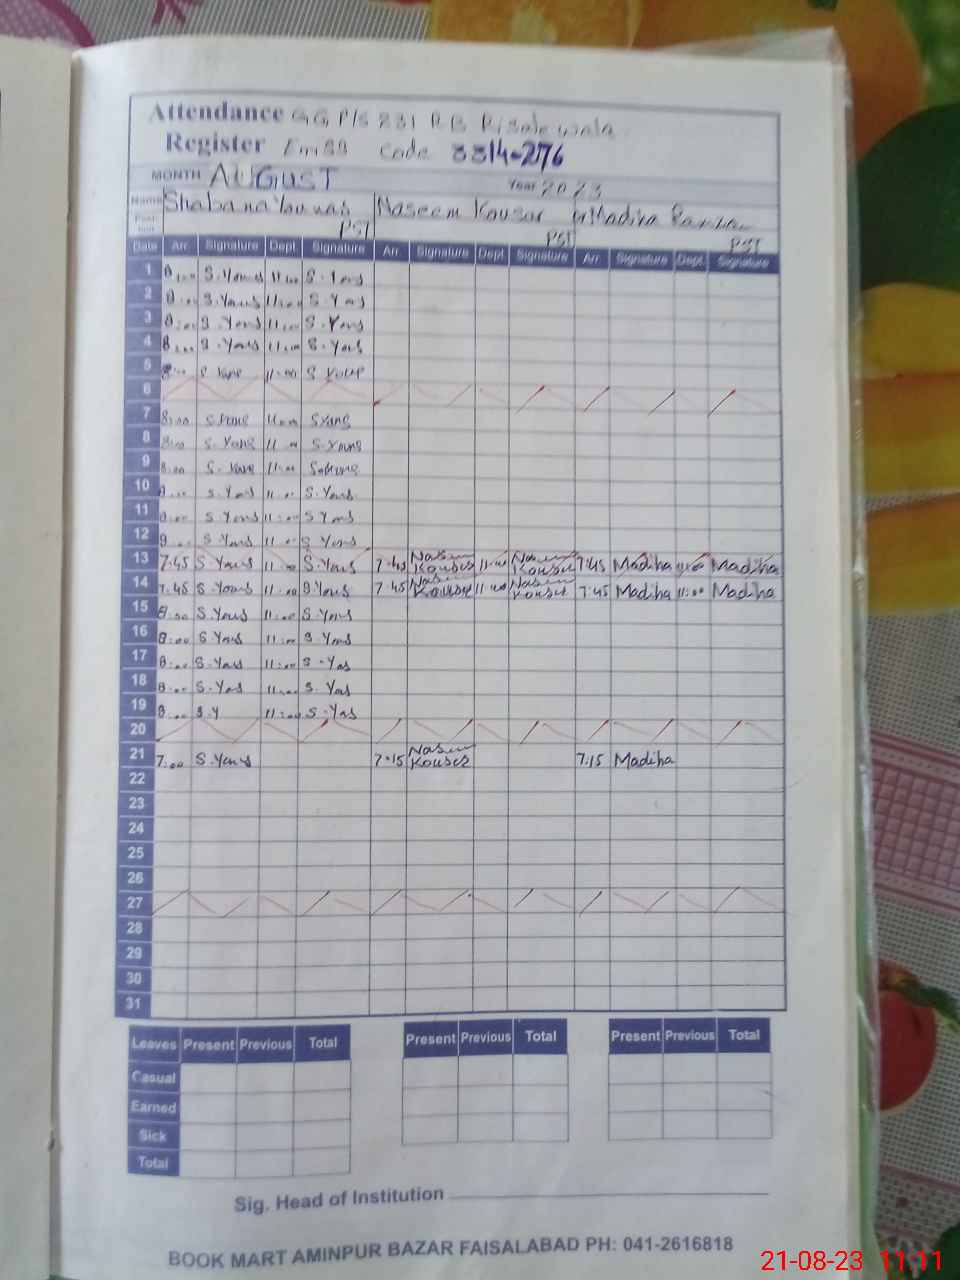 Attendance G.G.P/S 231 RB Risalewala
Register Emiss code 3314-276
MONTH AUGUST Year 2023
Name Shabana Younas Naseem Kousar Madiha
PST PST PST
Date Arr. Signature Dept. Signature Arr. Signature Dept. Signature Arr. Signature Dept. Signature
1 8:00 S.Youns 11:00 S.Yons
2 8:00 S.Youns 11:00 S.Yons
3 8:00 S.Yons 11:00 S.Yons
4 8:00 S.Yons 11:00 S.Yons
5 8:00 11:00
6
7 8:00 11:00
8 8:00 S.Yons 11:00 S.Youns
9 8:00 11:00
10 8:00 S.Yons 11:00 S.Yons
11 8:00 S.Yons 11:00 S.Yons
12 8:00 S.Yons 11:00 S.Yons
13 7:45 S.Yous 11:00 S.Yous 7:45 Nasim Kouser 11:00 Nasim Kouser 7:45 Madiha 11:00 Madiha
14 7:45 S.Yous 11:00 S.Yous 7:45 Nasim Kouser 11:00 Nasim Kouser 7:45 Madiha 11:00 Madiha
15 8:00 S.Yous 11:00 S.Yons
16 8:00 S.Yous 11:00 S.Yons
17 8:00 S.Yous 11:00 S.Yas
18 8:00 S.Yas 11:00 S.Yas
19 8:00 S.Y 11:00 S.Yas
20
21 7:00 S.Yous 7:15 Nasim Kouser 7:15 Madiha
22
23
24
25
26
27
28
29
30
31
Leaves Present Previous Total Present Previous Total Present Previous Total
Casual
Earned
Sick
Total
Sig. Head of Institution
BOOK MART AMINPUR BAZAR FAISALABAD PH: 041-2616818
21-08-23 11:11